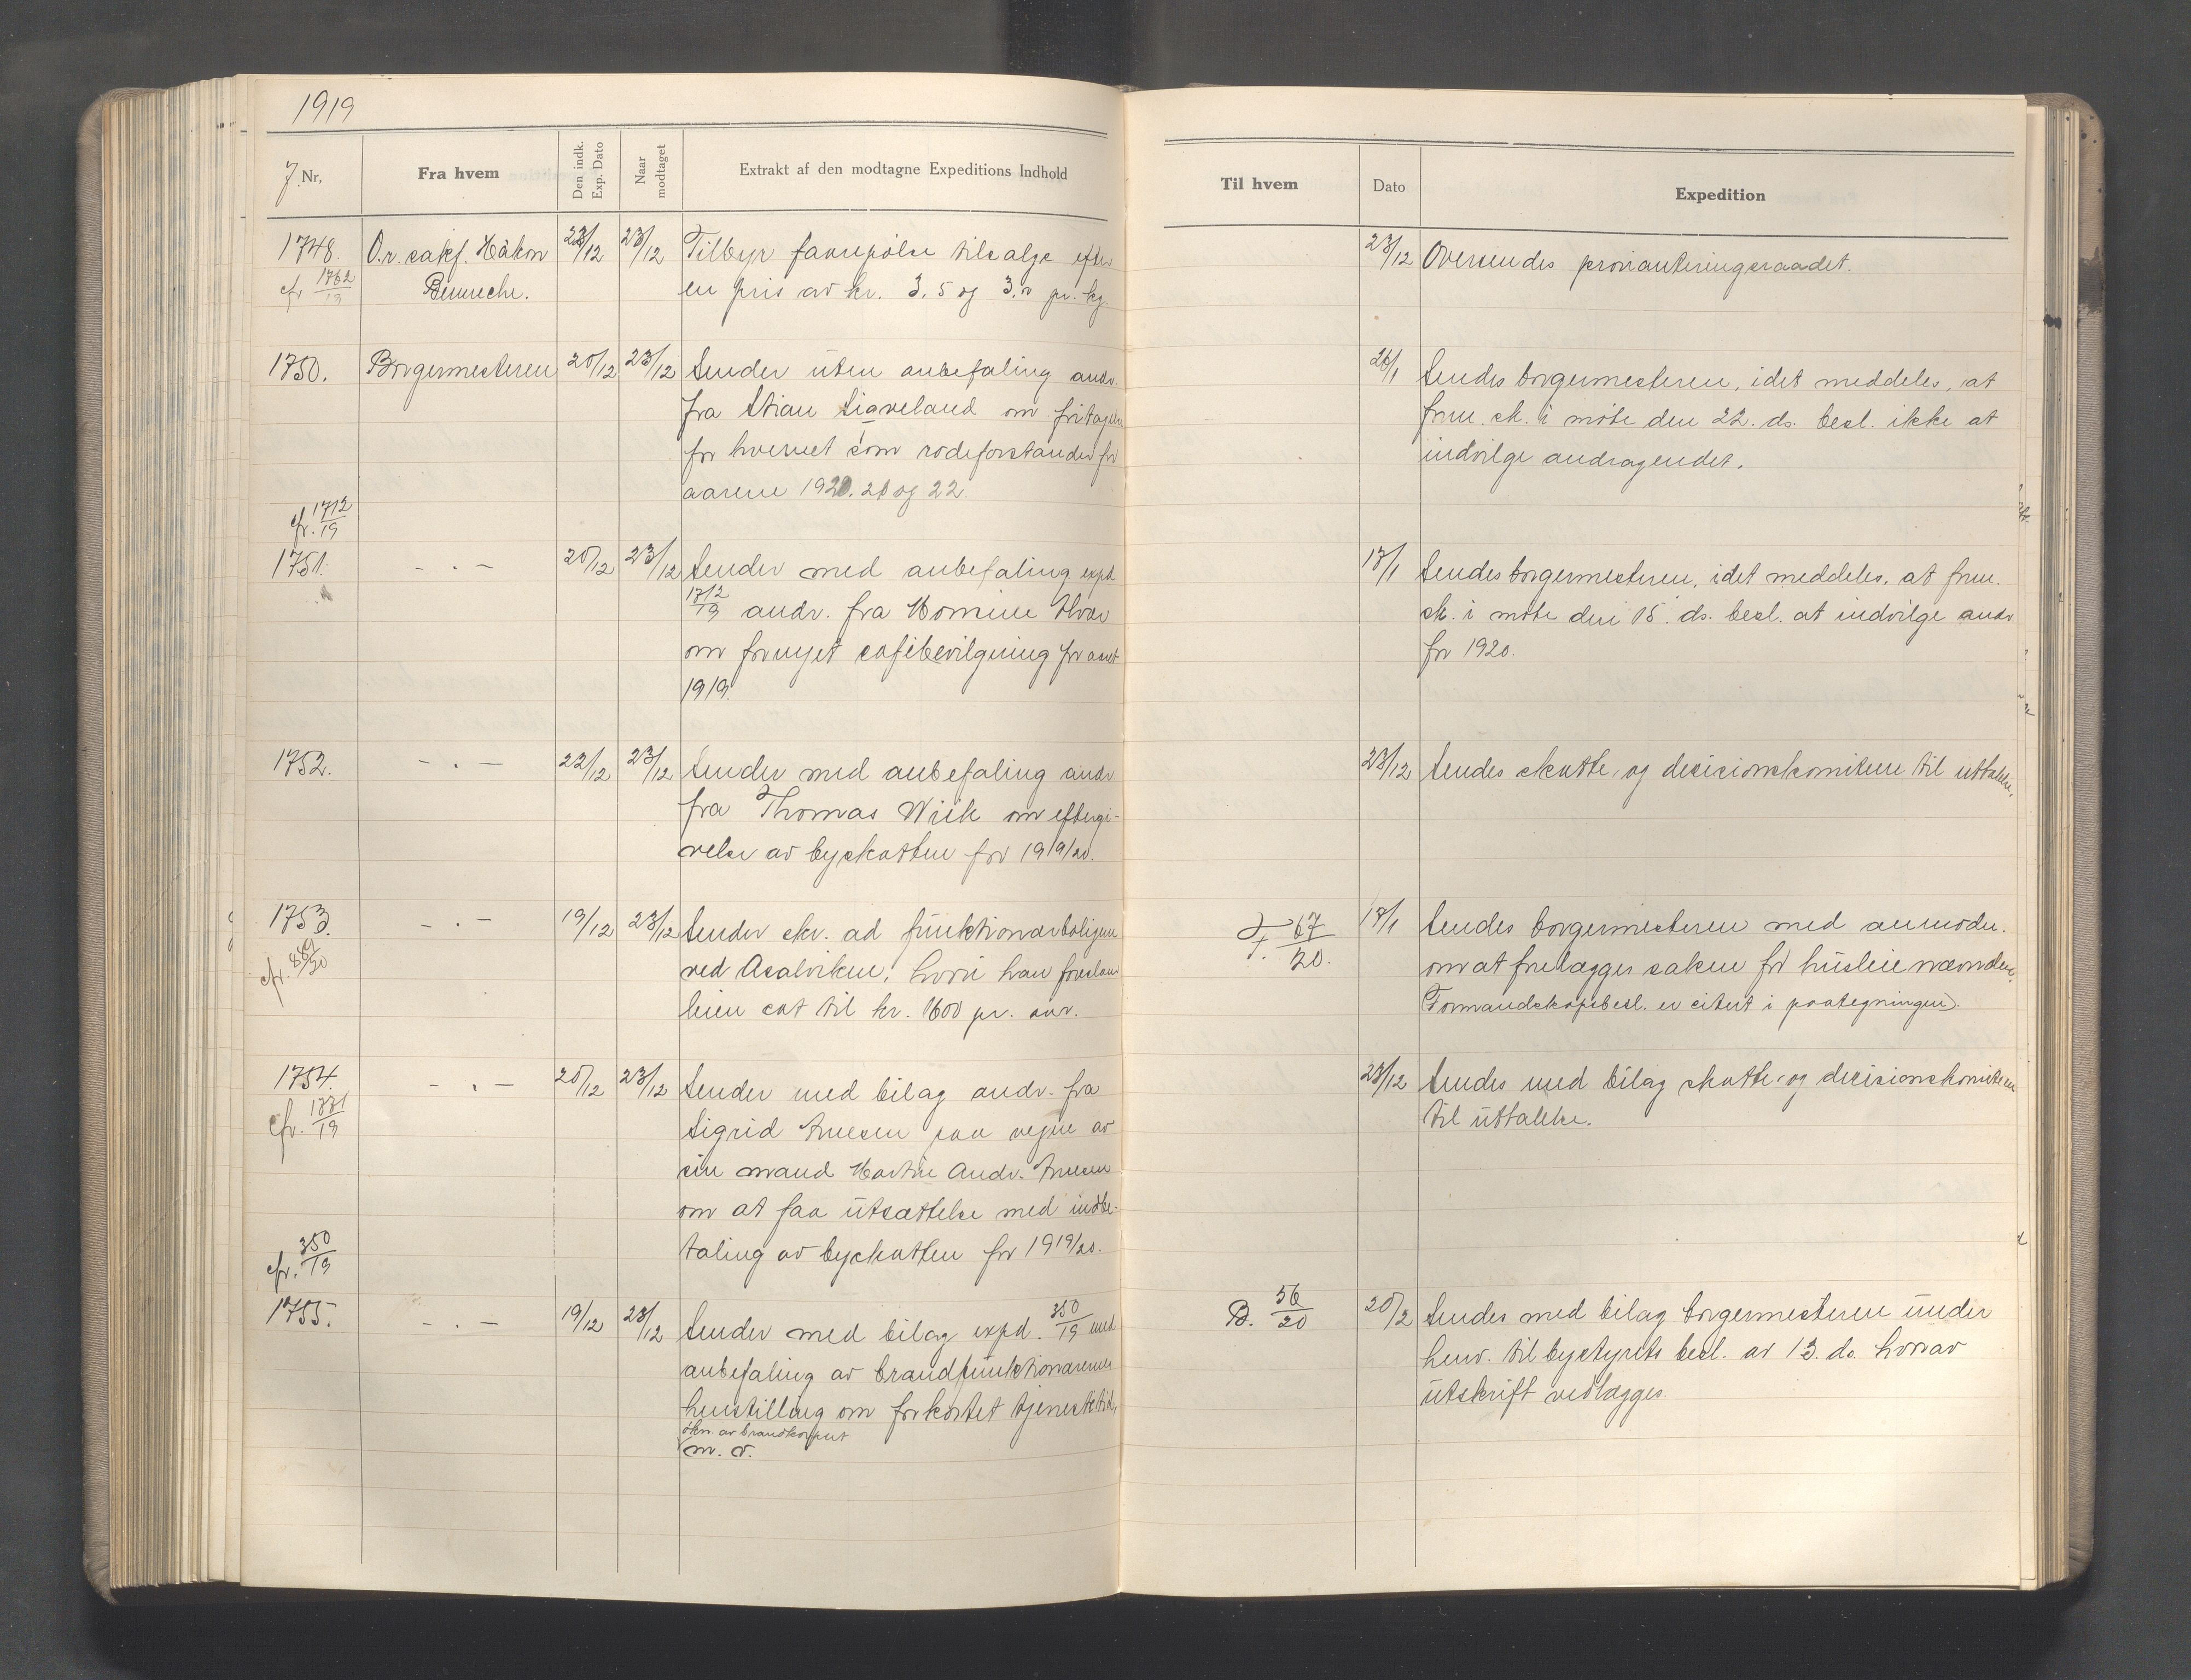 1919
J. Nr.
Fra hvem
Den indk. Exp. Dato
Naar modtaget
Extrakt af den modtagne Expeditions Indhold
1748. O.r. sakf. Håkon 22/12 23/12 Tilbyr faarepölse tilsalgs efter
cfr 1762/19
en pris av kr. 3.5 og pr. kg.
1750. Borgermesteren 20/12 23/12 Sender uten anbefaling andr.
fra Stian Sigveland om fritagelse
for hvervet som rodeforstander for
aarene 1920. 21 og 22.
cfr. 1712/19
1751. - . - 20/12 23/12 Sender med anbefaling expd.
1712/19 andr. fra
om fornyet cafebevilgning for aaret
1919.
1752. - . - 22/12 23/12 Sender med anbefaling andr
fra Thomas Wiik om eftergi-
velse av byskatten for 1919/20.
1753. - . - 19/12 23/12 Sender skr. ad funktionærboligene
cfr.
ved Asalviken, hvori han foreslaar
leien sat til kr. 1600 pr. aar.
1754. - . - 20/12 23/12 Sender med bilag andr. fra
cfr. 1771/19
Sigrid paa vegne av
sin mand Martin Andr.
om at faa utsættelse med indbe-
taling av byskatten for 1919/20.
cfr. 350/19
1755. - . - 19/12 23/12 Sender med bilag expd. 350/19 med
anbefaling av brandfunktionærernes
henstilling om forkortet tjenestetid,
økn. av brandkorpset
m. v.
Til hvem
Dato
Expedition
23/12 Oversendes provianteringsraadet.
26/1 Sendes borgermesteren, idet meddeles, at
frm. sk. i møte den 22. ds. besl. ikke at
indvilge andragendet.
17/1 Sendes borgermesteren, idet meddeles, at frm.
sk. i møte den 15. ds. besl. at indvilge andr.
for 1920.
23/12 Sendes skatte- og decisionskomiteen til uttalelse.
F. 67/20. 19/1 Sendes borgermesteren med anmodn.
om at forelægges saken for husleienævnden.
Formandskapsbesl. er citert i paategningen).
23/12 Sendes med bilag skatte- og decisionskomiteen
til uttalelse.
B. 56/20 20/2 Sendes med bilag borgermesteren under
henv. til bystyrets besl. av 13. ds. hvorav
utskrift vedlægges.